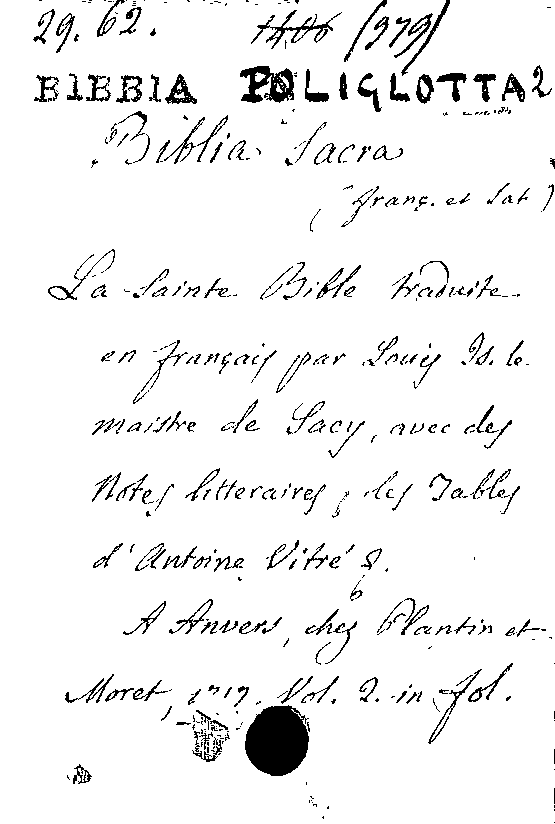 29. 62. 1406 (379)
BIBBIA POLIGLOTTA 2
Biblia Sacra
(franç. et Lat)
La Sainte Bible traduite
en français par Louis Is. le
maistre de Sacy, avec des
Notes litteraires, les Tables
d'Antoine Vitré &.
A Anvers, chez Plantin et
Moret, 1717. Vol. 2. in fol.